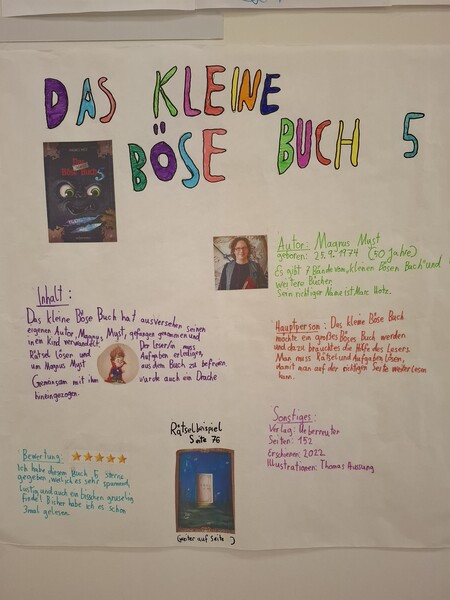 DAS KLEINE
BÖSE BUCH 5
Das
Böse Buch 5
Autor: Magnus Myst
geboren: 25.9.1974 (50 Jahre)
Es gibt 7 Bände vom „kleinen Bösen Buch" und
weitere Bücher.
Sein richtiger Name ist Marc Hotz.
Inhalt:
Das kleine Böse Buch hat ausversehen seinen
eigenen Autor, Magnus Myst, gefangen genommen und
in ein Kind verwandelt. Der Leser/in muss
Rätsel Lösen und Aufgaben erledigen,
um Magnus Myst aus dem Buch zu befreien.
Gemeinsam mit ihm wurde auch ein Drache
hineingezogen.
Hauptperson: Das kleine Böse Buch
möchte ein großes Böses Buch werden
und dazu braucht es die Hilfe des Lesers.
Man muss Rätsel und Aufgaben lösen,
damit man auf der richtigen Seite weiterlesen
kann.
Rätselbeispiel
Seite 76
Günter auf Seite :)
Sonstiges:
Verlag: Ueberreuter
Seiten: 152
Erschienen: 2022
Illustrationen: Thomas Hussung
Bewertung:
Ich habe diesem Buch 5 Sterne
gegeben, weil ich es sehr spannend,
lustig und auch ein bisschen gruselig
finde! Bisher habe ich es schon
3mal gelesen.